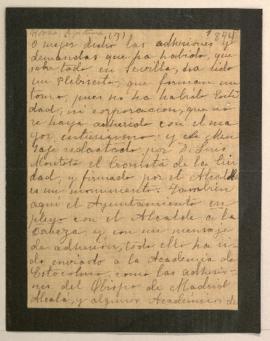 (3) 1894
O mejor dicho las adhesiones y
demandas que ha habido, que
sobre todo en Sevilla, ha sido
un Plebiscito, que forman un
tomo, pues no ha habido Enti
dad, ni corporación, que no
se haya adherido con el ma
yor entusiasmo: y el Men
saje redactado por D. Luis
Montoto el Cronista de la Ciu
dad, y firmado por el Alcalde
es un monumento. También
aquí el Ayuntamiento en
pleno con el Alcalde a la
Cabeza y con un mensaje
de adhesión, todo ello ha si
do enviado a la Academia de
Estocolmo, como las adhesio
nes del Obispo de Madrid
Alcalá, y algunos Académicos de